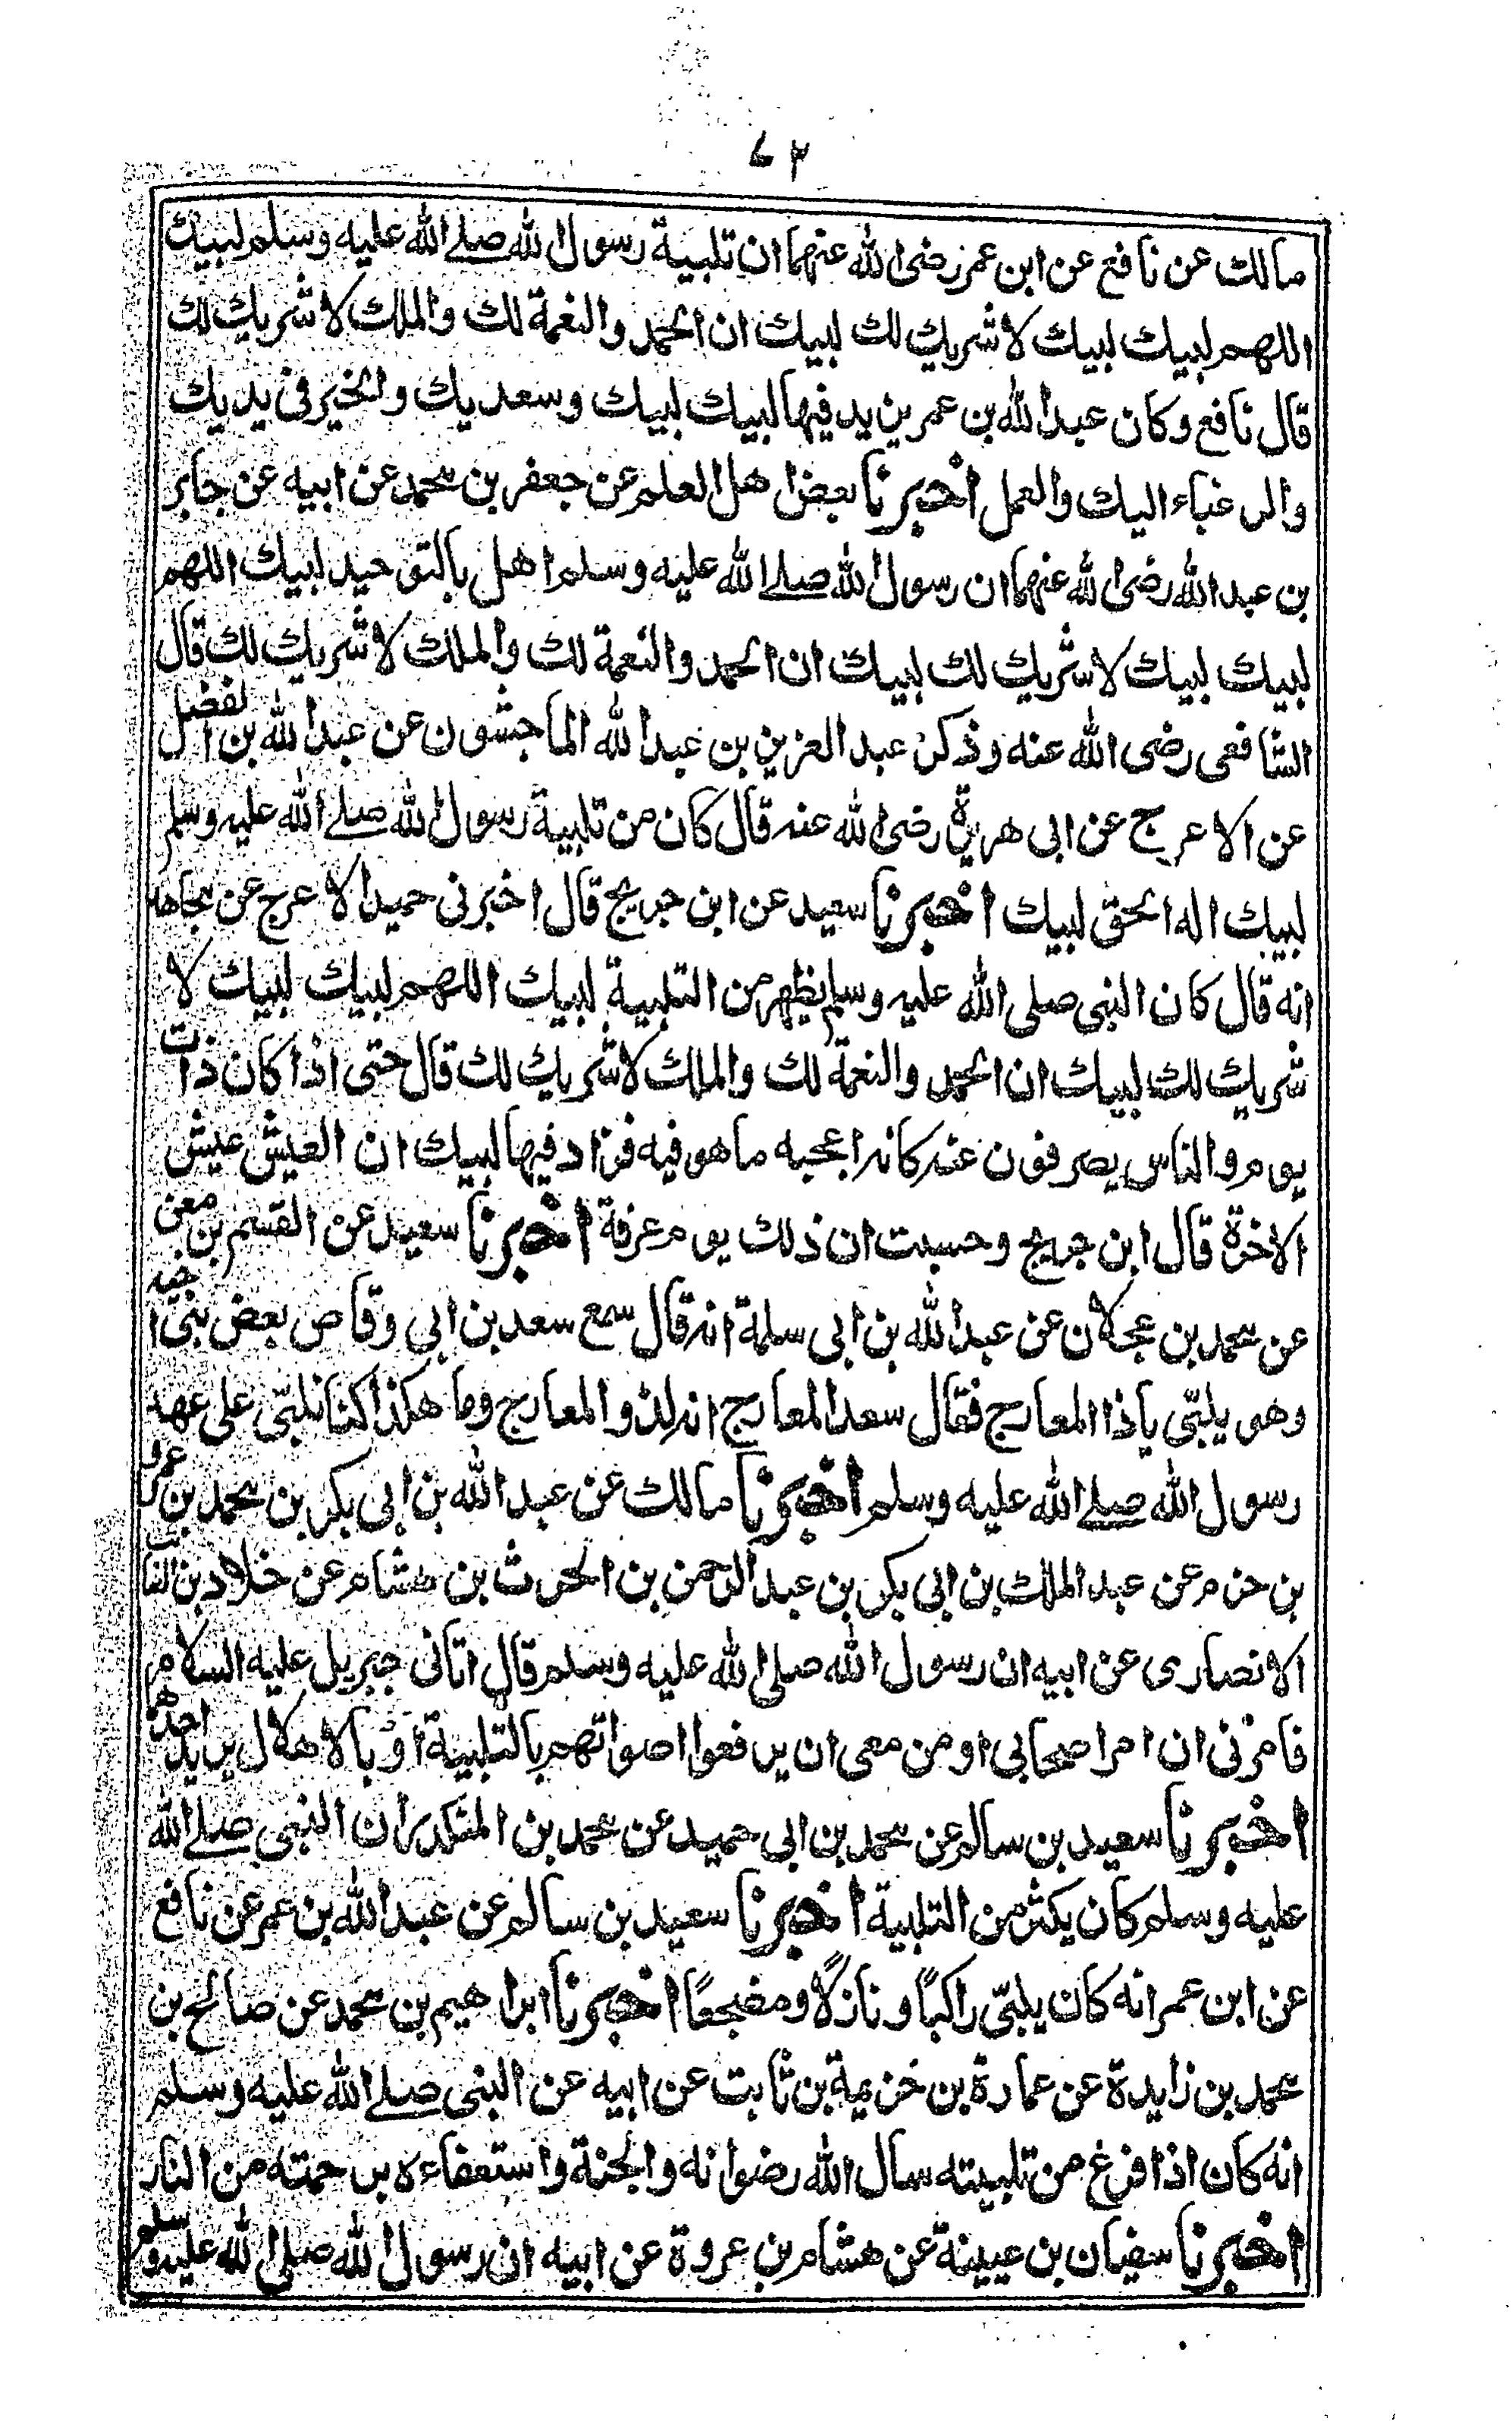 ٧٣
مالك عن نافع عن ابن عمر رضى الله عنهما ان تلبية رسول الله صلى الله عليه وسلم لبيك
اللهم لبيك لبيك لا شريك لك لبيك ان الحمد والنعمة لك والملك لا شريك لك
قال نافع وكان عبد الله بن عمر يزيد فيها لبيك لبيك وسعديك والخير فى يديك
والرغباء اليك والعمل اخبرنا بعض اهل العلم عن جعفر بن محمد عن ابيه عن جابر
بن عبد الله رضى الله عنهما ان رسول الله صلى الله عليه وسلم اهل بالتوحيد لبيك اللهم
لبيك لبيك لا شريك لك لبيك ان الحمد والنعمة لك والملك لا شريك لك قال
الشافعى رضى الله عنه وذكر عبد العزيز بن عبد الله الماجشون عن عبد الله بن الفضل
عن الاعرج عن ابى هريرة رضى الله عنه قال كان من تلبية رسول الله صلى الله عليه وسلم
لبيك اله الحق لبيك اخبرنا سعيد عن ابن جريج قال اخبرنى حميد الاعرج عن مجاهد
انه قال كان النبى صلى الله عليه وسلم يظهر من التلبية لبيك اللهم لبيك لبيك لا
شريك لك لبيك ان الحمد والنعمة لك والملك لا شريك لك قال حتى اذا كان ذات
يوم والناس يصرفون عنه كانه اعجبه ما هو فيه فزاد فيها لبيك ان العيش عيش
الاخرة قال ابن جريج وحسبت ان ذلك يوم عرفة اخبرنا سعيد عن القسم بن معن
عن محمد بن عجلان عن عبد الله بن ابى سلمة انه قال سمع سعد بن ابى وقاص بعض بنى اخيه
وهو يلبّى ياذا المعارج فقال سعد المعارج انه لذو المعارج وما هكذا كنا نلبّى على عهد
رسول الله صلى الله عليه وسلم اخبرنا مالك عن عبد الله بن ابى بكر بن محمد بن عمرو
بن حزم عن عبد الملك بن ابى بكر بن عبد الرحمن بن الحرث بن هشام عن خلاد بن السائب
الانصارى عن ابيه ان رسول الله صلى الله عليه وسلم قال اتانى جبريل عليه السلام
فامرنى ان امر اصحابى او من معى ان يرفعوا اصواتهم بالتلبية او بالاهلال يريد احدهما
اخبرنا سعيد بن سالم عن محمد بن ابى حميد عن محمد بن المنكدر ان النبى صلى الله
عليه وسلم كان يكثر من التلبية اخبرنا سعيد بن سالم عن عبد الله بن عمر عن نافع
عن ابن عمر انه كان يلبّى راكبًا ونازلًا ومضجعًا اخبرنا ابراهيم بن محمد عن صالح بن
محمد بن زايدة عن عمارة بن خزيمة بن ثابت عن ابيه عن النبى صلى الله عليه وسلم
انه كان اذا فرغ من تلبيته سال الله رضوانه والجنة واستعفاءه برحمته من النار
اخبرنا سفيان بن عيينة عن هشام بن عروة عن ابيه ان رسول الله صلى الله عليه وسلم